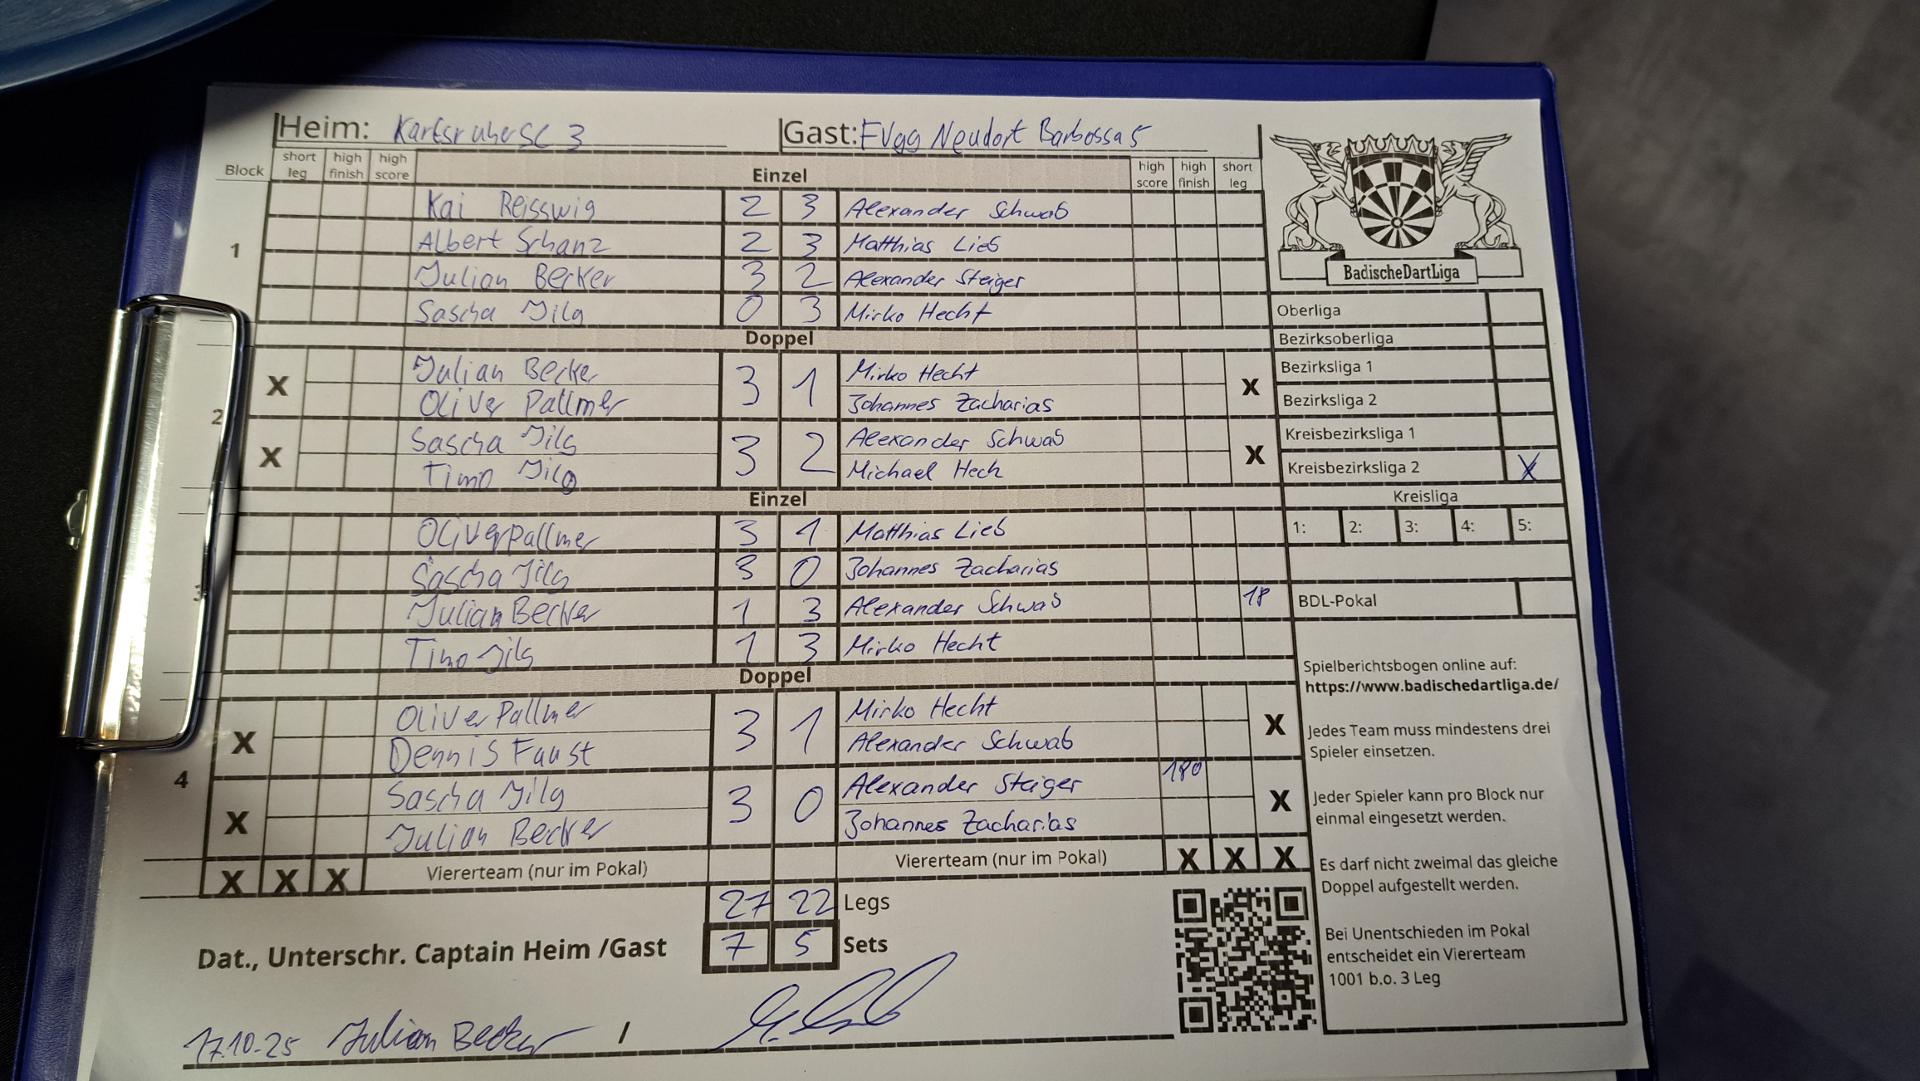 Heim: Karlsruher SC 3 Gast: FVgg Neudorf Barbossa 5
Block short leg high finish high score Einzel high score high finish short leg
1
Kai Reisswig 2 3 Alexander Schwab
Albert Schanz 2 3 Matthias Lieb
Julian Becker 3 2 Alexander Steiger
Sascha Jilg 0 3 Mirko Hecht
Doppel
2
X Julian Becker 3 1 Mirko Hecht X
Oliver Pallmer Johannes Zacharias
X Sascha Jilg 3 2 Alexander Schwab X
Timo Jilg Michael Heck
Einzel
3
Oliver Pallmer 3 1 Matthias Lieb
Sascha Jilg 3 0 Johannes Zacharias
Julian Becker 1 3 Alexander Schwab 18
Timo Jilg 1 3 Mirko Hecht
Doppel
4
X Oliver Pallmer 3 1 Mirko Hecht X
Dennis Faust Alexander Schwab
X Sascha Jilg 3 0 Alexander Steiger 180 X
Julian Becker Johannes Zacharias
X X X Viererteam (nur im Pokal) Viererteam (nur im Pokal) X X X
27 22 Legs
7 5 Sets
Dat., Unterschr. Captain Heim /Gast
17.10.25 Julian Becker /
BadischeDartLiga
Oberliga
Bezirksoberliga
Bezirksliga 1
Bezirksliga 2
Kreisbezirksliga 1
Kreisbezirksliga 2 X
Kreisliga
1: 2: 3: 4: 5:
BDL-Pokal
Spielberichtsbogen online auf:
https://www.badischedartliga.de/
Jedes Team muss mindestens drei
Spieler einsetzen.
Jeder Spieler kann pro Block nur
einmal eingesetzt werden.
Es darf nicht zweimal das gleiche
Doppel aufgestellt werden.
Bei Unentschieden im Pokal
entscheidet ein Viererteam
1001 b.o. 3 Leg